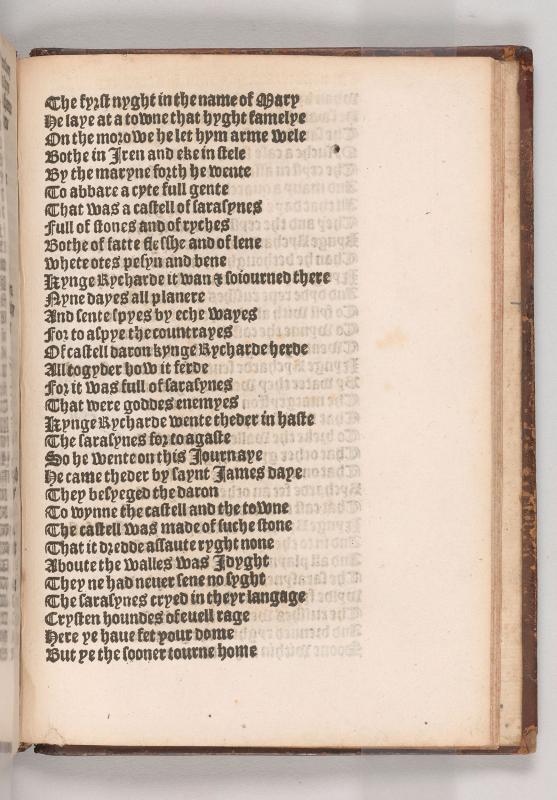 The fyrst nyght in the name of Mary
He laye at a towne that hyght famelye
On the morowe he let hym arme wele
Bothe in Iren and eke in stele
By the maryne forth he wente
To abbare a cyte full gente
That was a castell of sarasynes
Full of stones and of ryches
Bothe of fatte flesshe and of lene
whete otes pesyn and bene
Kynge Rycharde it wan & soiourned there
Nyne dayes all planere
And sente spyes by eche wayes
For to aspye the countrayes
Of castell daron kynge Rycharde herde
All togyder how it ferde
For it was full of sarasynes
That were goddes enemyes
Kynge Rycharde wente theder in haste
The sarasynes for to agaste
So he wente on this Journaye
He came theder by saynt James daye
They besyeged the daron
To wynne the castell and the towne
The castell was made of suche stone
That it dredde assaute ryght none
Aboute the walles was Idyght
They ne had neuer sene no syght
The sarasynes cryed in theyr langage
Crysten houndes of euell rage
Here ye haue fet your dome
But ye the sooner tourne home